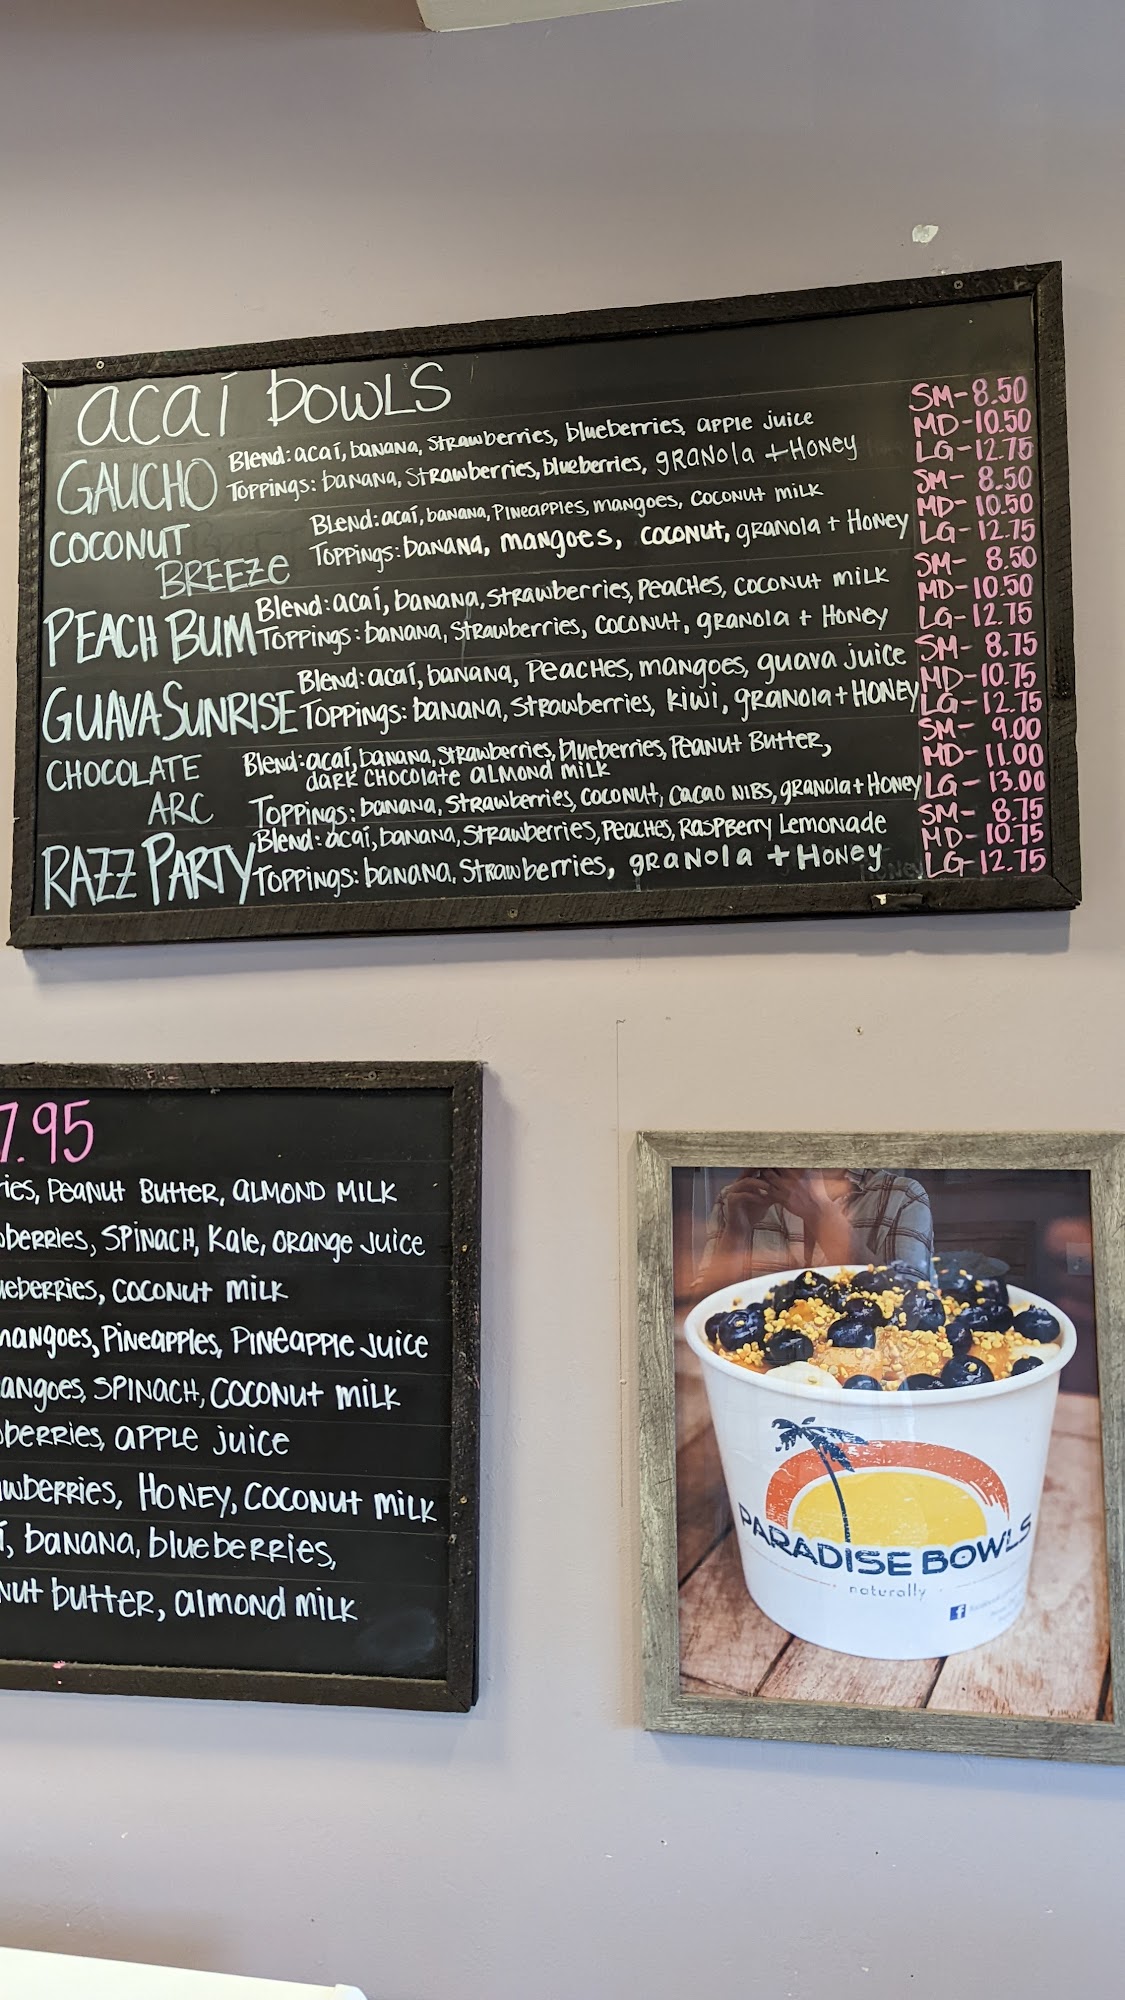 acaí bowLS
GAUCHO
Blend: acaí, banana, strawberries, blueberries, apple juice
Toppings: banana, strawberries, blueberries, gRaNola + HoNey
SM-8.50
MD-10.50
LG-12.75
COCONUT
BREEZe
BLEND: acaí, banana, Pineapples, mangoes, coconut milk
Toppings: banana, mangoes, coconut, granola + Honey
SM- 8.50
MD-10.50
LG-12.75
PEACH BUM
Blend: acaí, banana, strawberries, Peaches, coconut milk
Toppings: banana, strawberries, coconut, granola + Honey
SM- 8.50
MD-10.50
LG-12.75
GUAVA SUNRISE
Blend: acaí, banana, Peaches, mangoes, guava juice
Toppings: banana, strawberries, kiwi, granola + Honey
SM- 8.75
MD-10.75
LG-12.75
CHOCOLATE
ARC
Blend: acaí, banana, strawberries, blueberries, Peanut Butter,
dark chocolate almond milk
Toppings: banana, strawberries, coconut, cacao nibs, granola + Honey
SM- 9.00
MD-11.00
LG-13.00
RAZZ PARTY
Blend: acaí, banana, strawberries, Peaches, Raspberry Lemonade
Toppings: banana, strawberries, granola + Honey
SM- 8.75
MD-10.75
LG-12.75
7.95
Peanut Butter, almond milk
SPINACH, Kale, orange juice
coconut milk
mangoes, Pineapples, Pineapple juice
SPINACH, coconut milk
apple juice
Honey, coconut milk
banana, blueberries,
butter, almond milk
PARADISE BOWLS
naturally
f